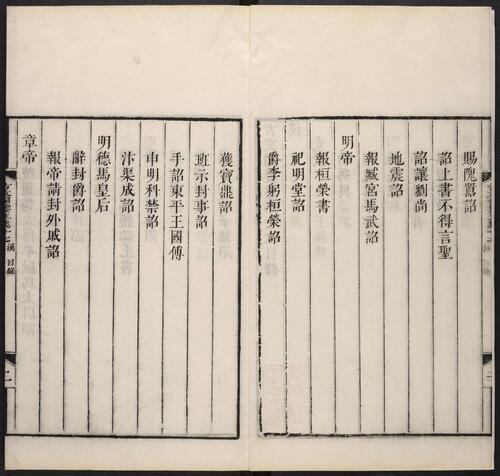 賜隗囂詔
詔上書不得言聖
詔讓劉尚
地震詔
報臧宮馬武詔
明帝
報桓榮書
祀明堂詔
爵李躬桓榮詔
獲寶鼎詔
班示封事詔
手詔東平王國傅
申明科禁詔
汴渠成詔
明德馬皇后
辭封爵詔
報帝請封外戚詔
章帝
漢 目錄
二